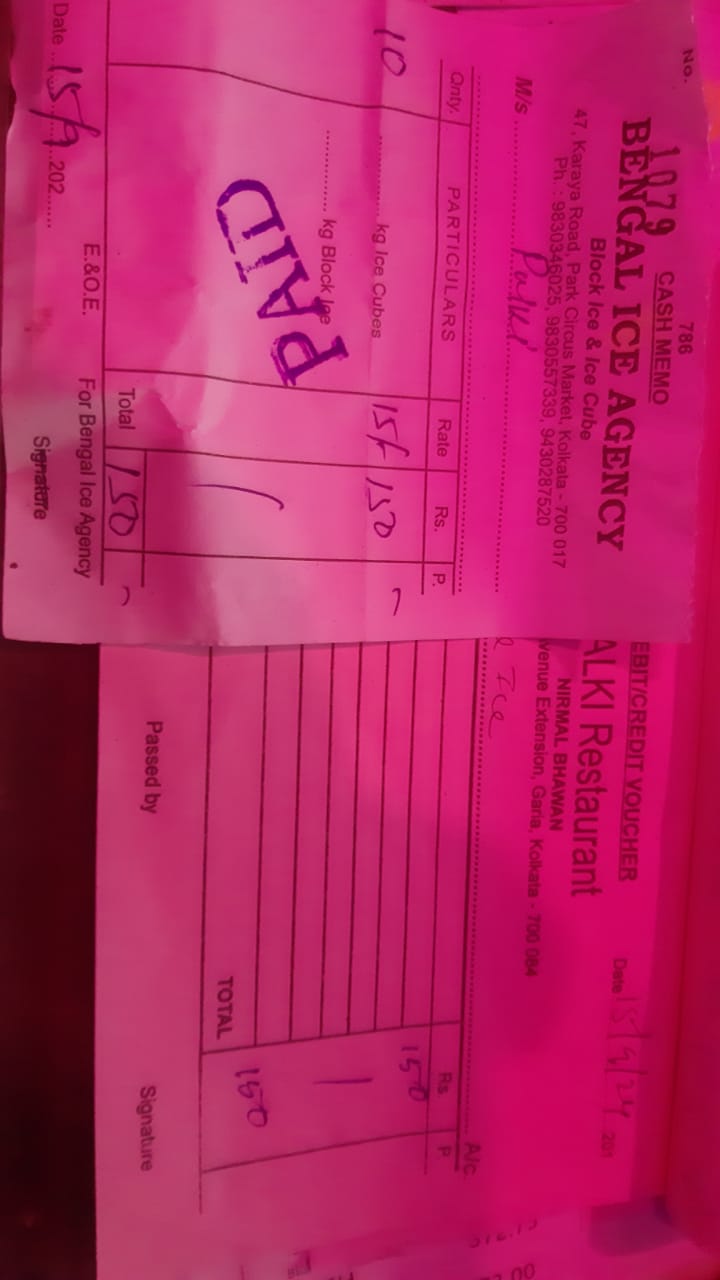 786
No. 1079 CASH MEMO
BENGAL ICE AGENCY
Block Ice & Ice Cube
47, Karaya Road, Park Circus Market, Kolkata - 700 017
Ph. : 9830346025, 9830557339, 9430287520
M/s
Qnty. PARTICULARS Rate Rs. P.
10 kg Ice Cubes 15/ 150
kg Block Ice
PAID
Total 150
E.&.O.E. For Bengal Ice Agency
Date 15/9 202 Signature
EBIT/CREDIT VOUCHER
ALKI Restaurant Date 15/9/24 201
NIRMAL BHAWAN
venue Extension, Garia, Kolkata - 700 084
Ice
A/c.
Rs P
150
TOTAL 150
Passed by Signature